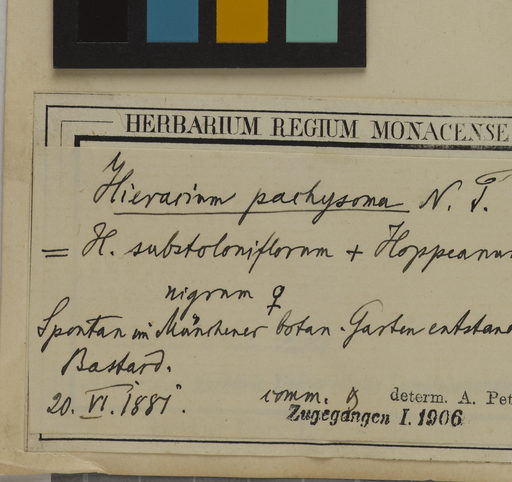 HERBARIUM REGIUM MONACENSE
Hieracium pachysoma N. P.
= H. substoloniflorum + Hoppeanum
nigrum ♀
Spontan im Münchener botan. Garten entstand
Bastard.
20. VI. 1881.
comm. & determ. A. Pet
Zugegangen I. 1906